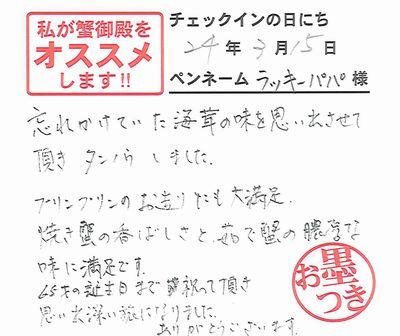 私が蟹御殿を
オススメ
します!!
チェックインの日にち
24年3月15日
ペンネーム ラッキーパパ 様
忘れかけていた海茸の味を思い出させて
頂き タンノウ しました。
プリンプリンのお造りにも大満足。
焼き蟹の香ばしさと、茹で蟹の濃厚な
味に満足です。
65才の誕生日まで祝って頂き
思い出深い旅になりました。
ありがとうございます。
お墨つき